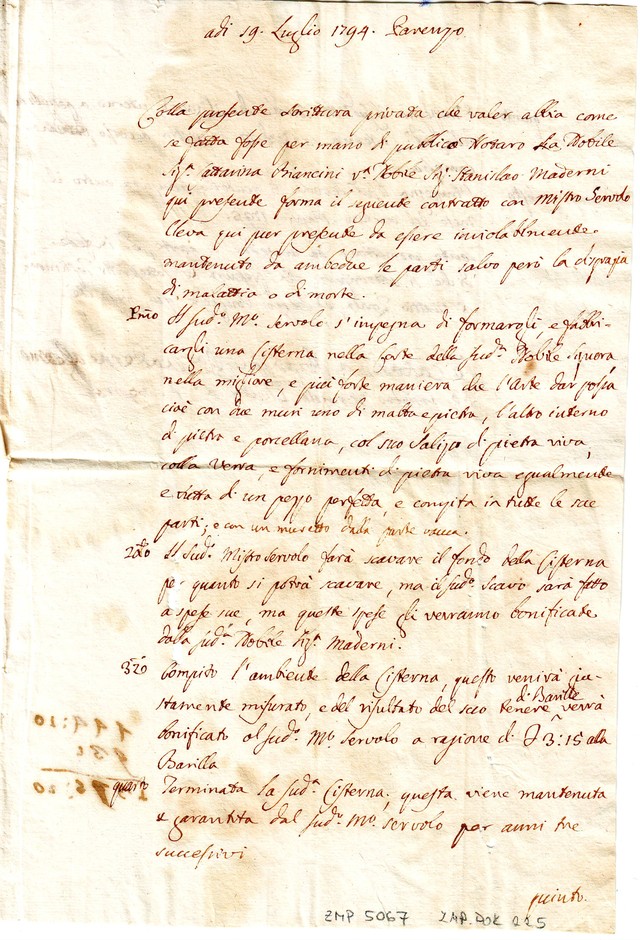 adi 19. Luglio 1794. Parenzo.
Colla presente Scrittura privata che valer abbia come
se fatta fosse per mano di publico Notaro la Nobile
Sig.a Cattarina Biancini v.a Nobile Sig.r Stanislao Maderni
qui presente forma il seguente contratto con Mistro Servolo
Cleva qui pur presente da essere inviolabilmente
mantenuto da ambedue le parti salvo però la disgrazia
di malattia o di morte.
Pmo Il sud.o M.o Servolo s'impegna di formargli, e fabbri-
cargli una Cisterna nella Corte della sud.a Nobile Signora
nella migliore, e più forte maniera che l'Arte dar possa
cioè con due muri uno di malta e pietra, l'altro interno
di pietra e porcellana, col suo Salizo di pietra viva,
colla Vera, e fornimenti di pietra viva egualmente
e tutta di un pezzo perfetta, e compita in tutte le sue
parti; e con un muretto dalla parte
2do Il Sud.o Mistro Servolo farà scavare il fondo della Cisterna
per quanto si potrà scavare, ma il sud.o scavo sarà fatto
a spese sue, ma queste spese gli verranno bonificate
dalla sud.a Nobile Sig.a Maderni.
3zo Compito l'ambiente della Cisterna, questo venirà giu-
stamente misurato, e del risultato del suo tenere di Barille verrà
bonificato al sud.o M.o Servolo a ragione di 3:15 alla
Barilla
quarto Terminata la sud.a Cisterna, questa viene mantenuta
e garantita dal sud.o M.o Servolo per anni tre
successivi
quinto.
ZMP 5067 ZAP. DOK 225